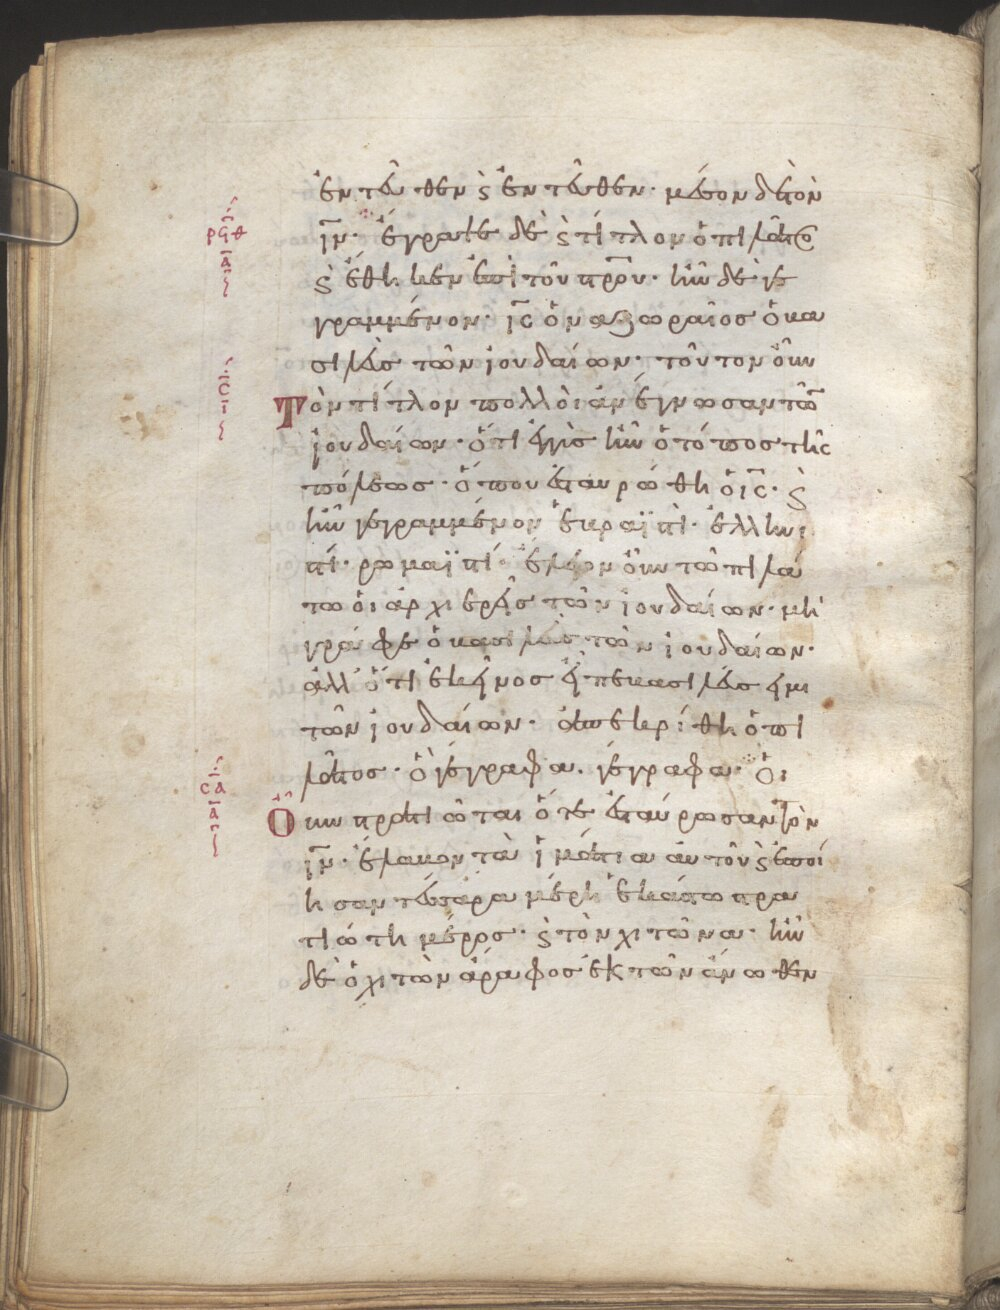 ἐντεῦθεν ϗ ἐντεῦθεν· μέσον δὲ τὸν
ρϟθ
ι̅ν̅· ἔγραψε δὲ ϗ τίτλον ὁ πιλάτος
α̅
ϗ ἔθηκεν ἐπὶ τοῦ σ̅ρ̅ο̅υ̅· ἦν δὲ γε
γραμμένον· ι̅ς̅ ὁ ναζωραῖος ὁ βα
σιλεὺς τῶν ἰουδαίων· τοῦτον οὖν
σ̅
ι̅
Τὸν τίτλον πολλοὶ ἀνέγνωσαν τῶν
ἰουδαίων· ὅτι ἐγγὺς ἦν ὁ τόπος τῆς
πόλεως· ὅπου ἐσταυρώθη ὁ ι̅ς̅· ϗ
ἦν γεγραμμένον ἑβραϊστὶ· ἑλληνι
στί· ρωμαϊστί· ἔλεγον οὖν τῶ πιλά
τω οἱ ἀρχιερεῖς τῶν ἰουδαίων· μὴ
γράφε ὁ βασιλεὺς τῶν ἰουδαίων·
ἀλλ' ὅτι ἐκεῖνος εἶπε βασιλεύς εἰμι
τῶν ἰουδαίων· ἀπεκρίθη ὁ πι
λᾶτος· ὃ γέγραφα. γέγραφα· Οἱ
σα
α̅
Οὖν στρατιῶται ὅτε ἐσταύρωσαν τὸν
ι̅ν̅· ἔλαβον τὰ ἱμάτια αὐτοῦ ϗ ἐποί
ησαν τέσσαρα μέρη ἑκάστω στρα
τιώτη μέρος· ϗ τὸν χιτῶνα· ἦν
δὲ ὁ χιτὼν ἄραφος ἐκ τῶν ἄνωθεν